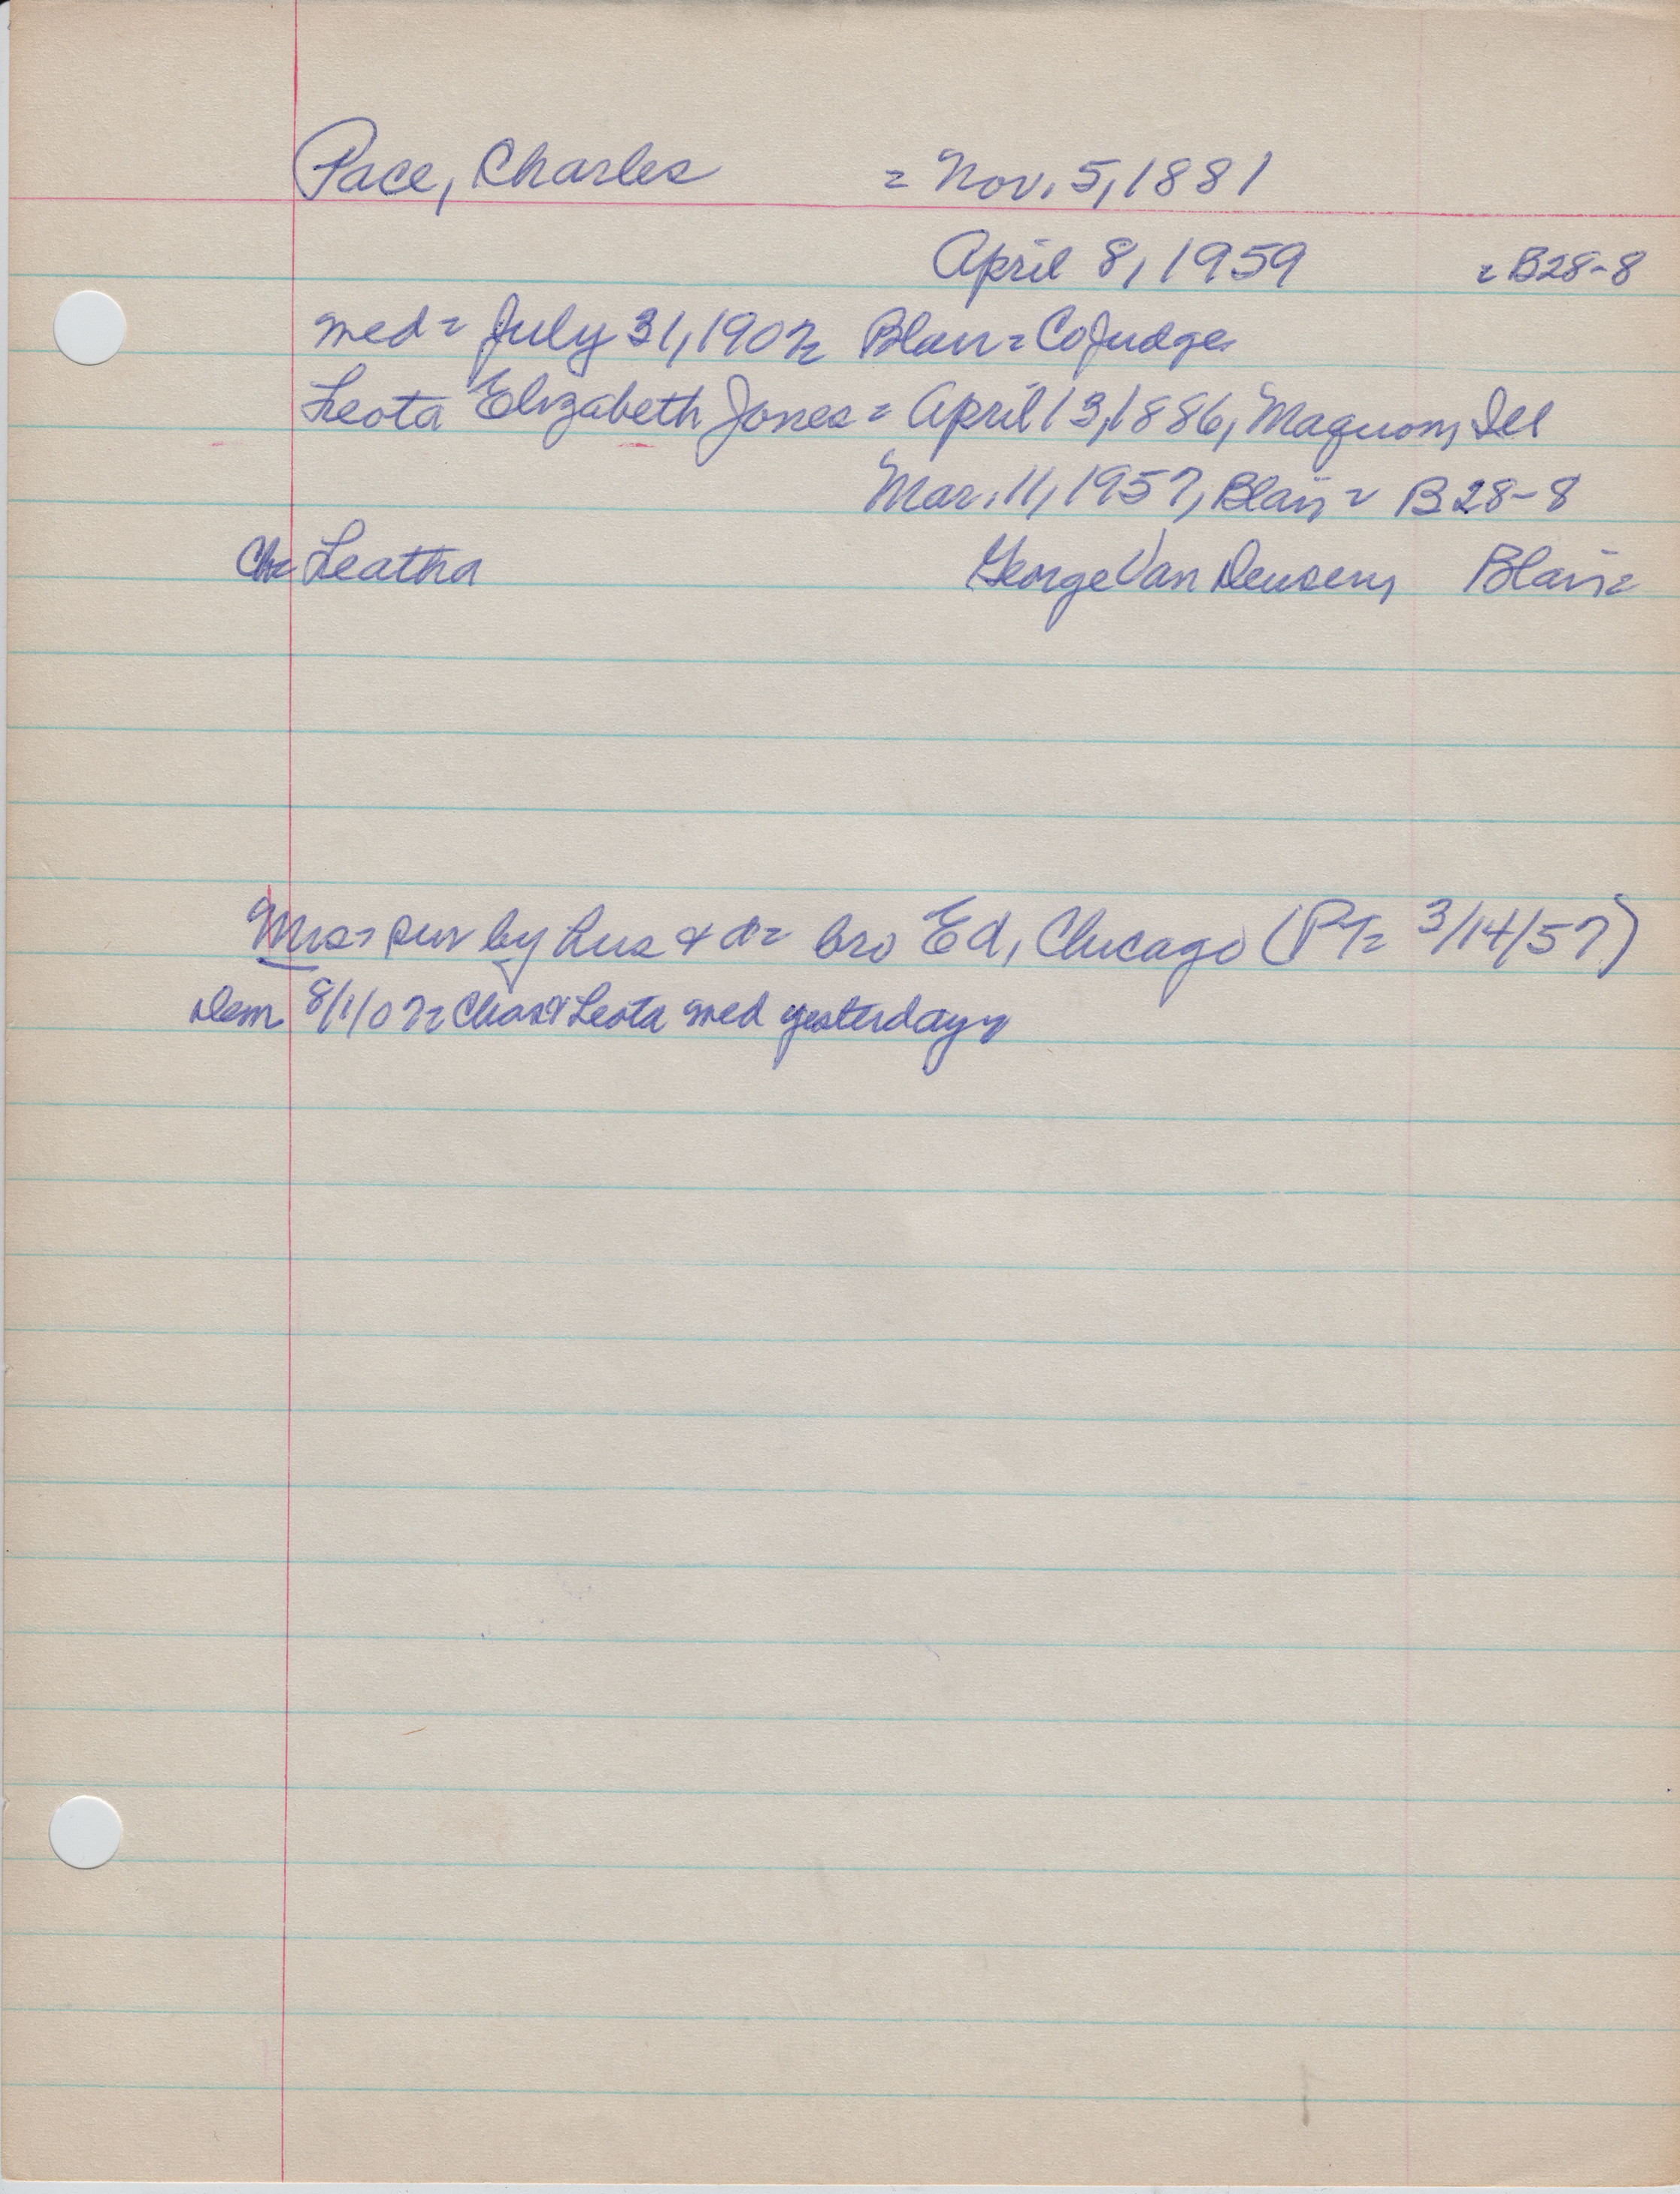 Pace, Charles = Nov. 5, 1881
April 8, 1959 = B28-8
med = July 31, 1907 = Blair = Co Judge
Leota Elizabeth Jones = April 13, 1886, Maquon, Ill
Mar. 11, 1957, Blair = B28-8
Ch = Leatha George Van Deusen, Blair =
Mrs = sur by hus & d = bro Ed, Chicago (PT = 3/14/57)
Dem 8/1/07 = Chas & Leota med yesterday =